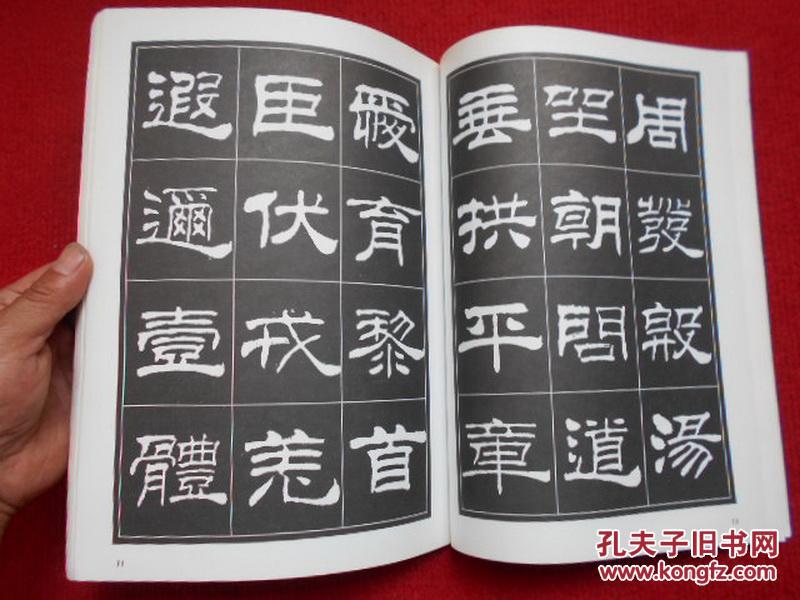 周發殷湯
坐朝問道
垂拱平章
愛育黎首
臣伏戎羌
遐邇壹體
11
孔夫子旧书网
www.kongfz.com